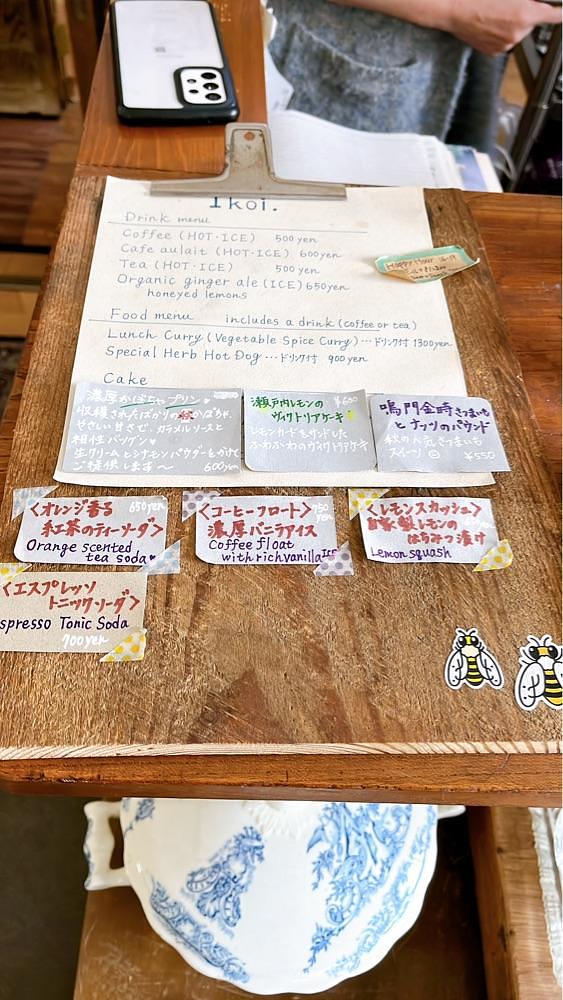 Ikoi.
Drink menu
Coffee (HOT・ICE) 500yen
Cafe aulait (HOT・ICE) 600yen
Tea (HOT・ICE) 500yen
Organic ginger ale (ICE) 650yen
honeyed lemons
Food menu includes a drink (coffee or tea)
Lunch Curry (Vegetable Spice Curry)…ドリンク付 1300yen
Special Herb Hot Dog…ドリンク付 900yen
Cake
濃厚かぼちゃプリン
収穫されたばかりの かぼちゃ、
やさしい甘さで、カラメルソースと
相性バツグン♥
生クリームとシナモンパウダーをかけて
ご提供します〜 600yen
瀬戸内レモンの ¥600
ヴィクトリアケーキ
レモンカードをサンドした
ふわふわのヴィクトリアケーキ
鳴門金時さつまいも
とナッツのパウンド
秋の人気さつまいも
スイーツ ☺ ¥550
Happy Hour
〈オレンジ香る 650yen
紅茶のティーソーダ〉
Orange scented
tea soda♥
〈コーヒーフロート〉 750yen
濃厚バニラアイス
Coffee float
with rich vanilla
〈レモンスカッシュ〉
自家製レモンの
はちみつ漬け
Lemon squash
〈エスプレッソ
トニックソーダ〉
spresso Tonic Soda
700yen